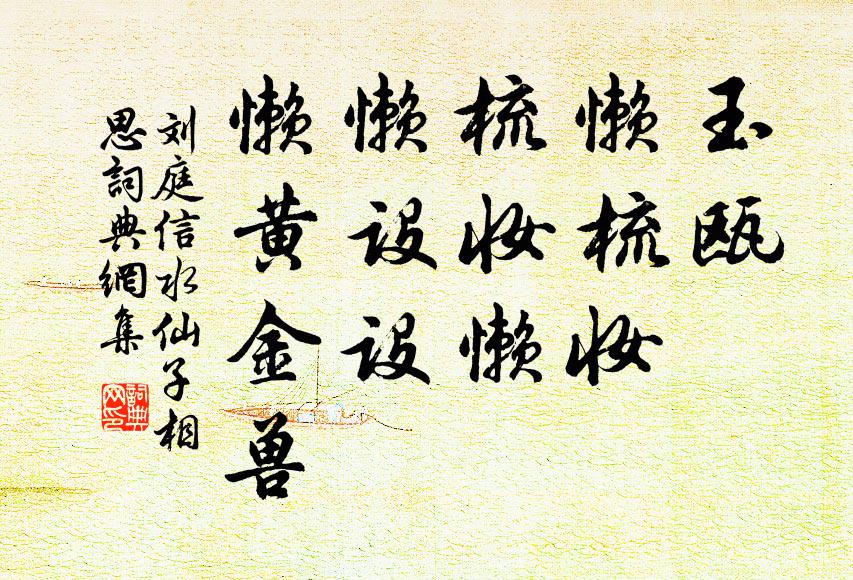 玉瓯
懒梳妆
梳妆懒
懒设设
懒黄金兽
刘庭信水仙子相
思词典网集
詞典
网印